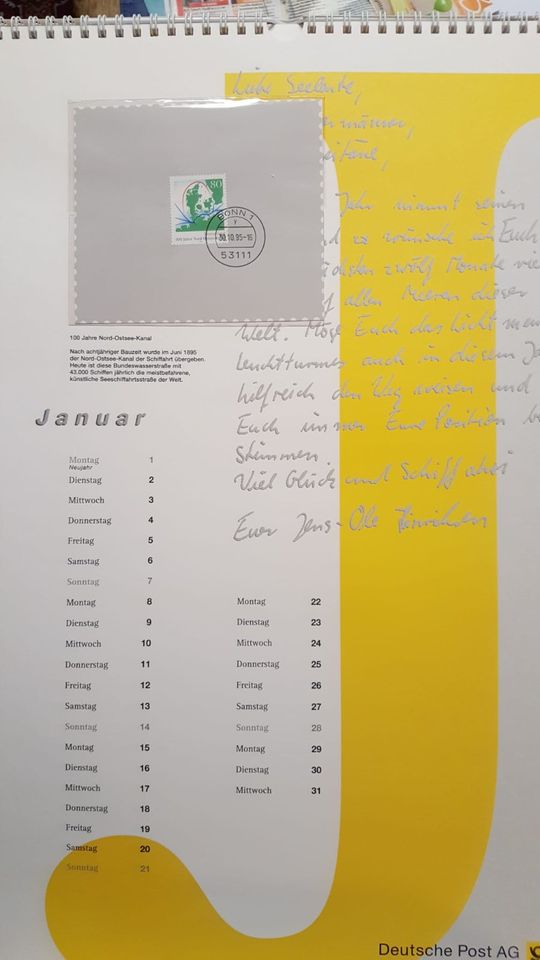 Liebe Seeleute,
80
BONN 1
y
30.10.95-16
53111
Jahr nimmt seinen
es wünsche ich Euch
zwölf Monate
allen Meeren dieser
Welt. Möge Euch das Licht
auch in diesem
hilfreich den Weg weisen und
Euch immer Eure Position
stimmen.
Viel Glück und Schiff ahoi
Euer Jens-Ole Hinrichsen
100 Jahre Nord-Ostsee-Kanal
Nach achtjähriger Bauzeit wurde im Juni 1895
der Nord-Ostsee-Kanal der Schiffahrt übergeben.
Heute ist diese Bundeswasserstraße mit
43.000 Schiffen jährlich die meistbefahrene,
künstliche Seeschiffahrtsstraße der Welt.
Januar
Montag 1
Neujahr
Dienstag 2
Mittwoch 3
Donnerstag 4
Freitag 5
Samstag 6
Sonntag 7
Montag 8
Dienstag 9
Mittwoch 10
Donnerstag 11
Freitag 12
Samstag 13
Sonntag 14
Montag 15
Dienstag 16
Mittwoch 17
Donnerstag 18
Freitag 19
Samstag 20
Sonntag 21
Montag 22
Dienstag 23
Mittwoch 24
Donnerstag 25
Freitag 26
Samstag 27
Sonntag 28
Montag 29
Dienstag 30
Mittwoch 31
Deutsche Post AG